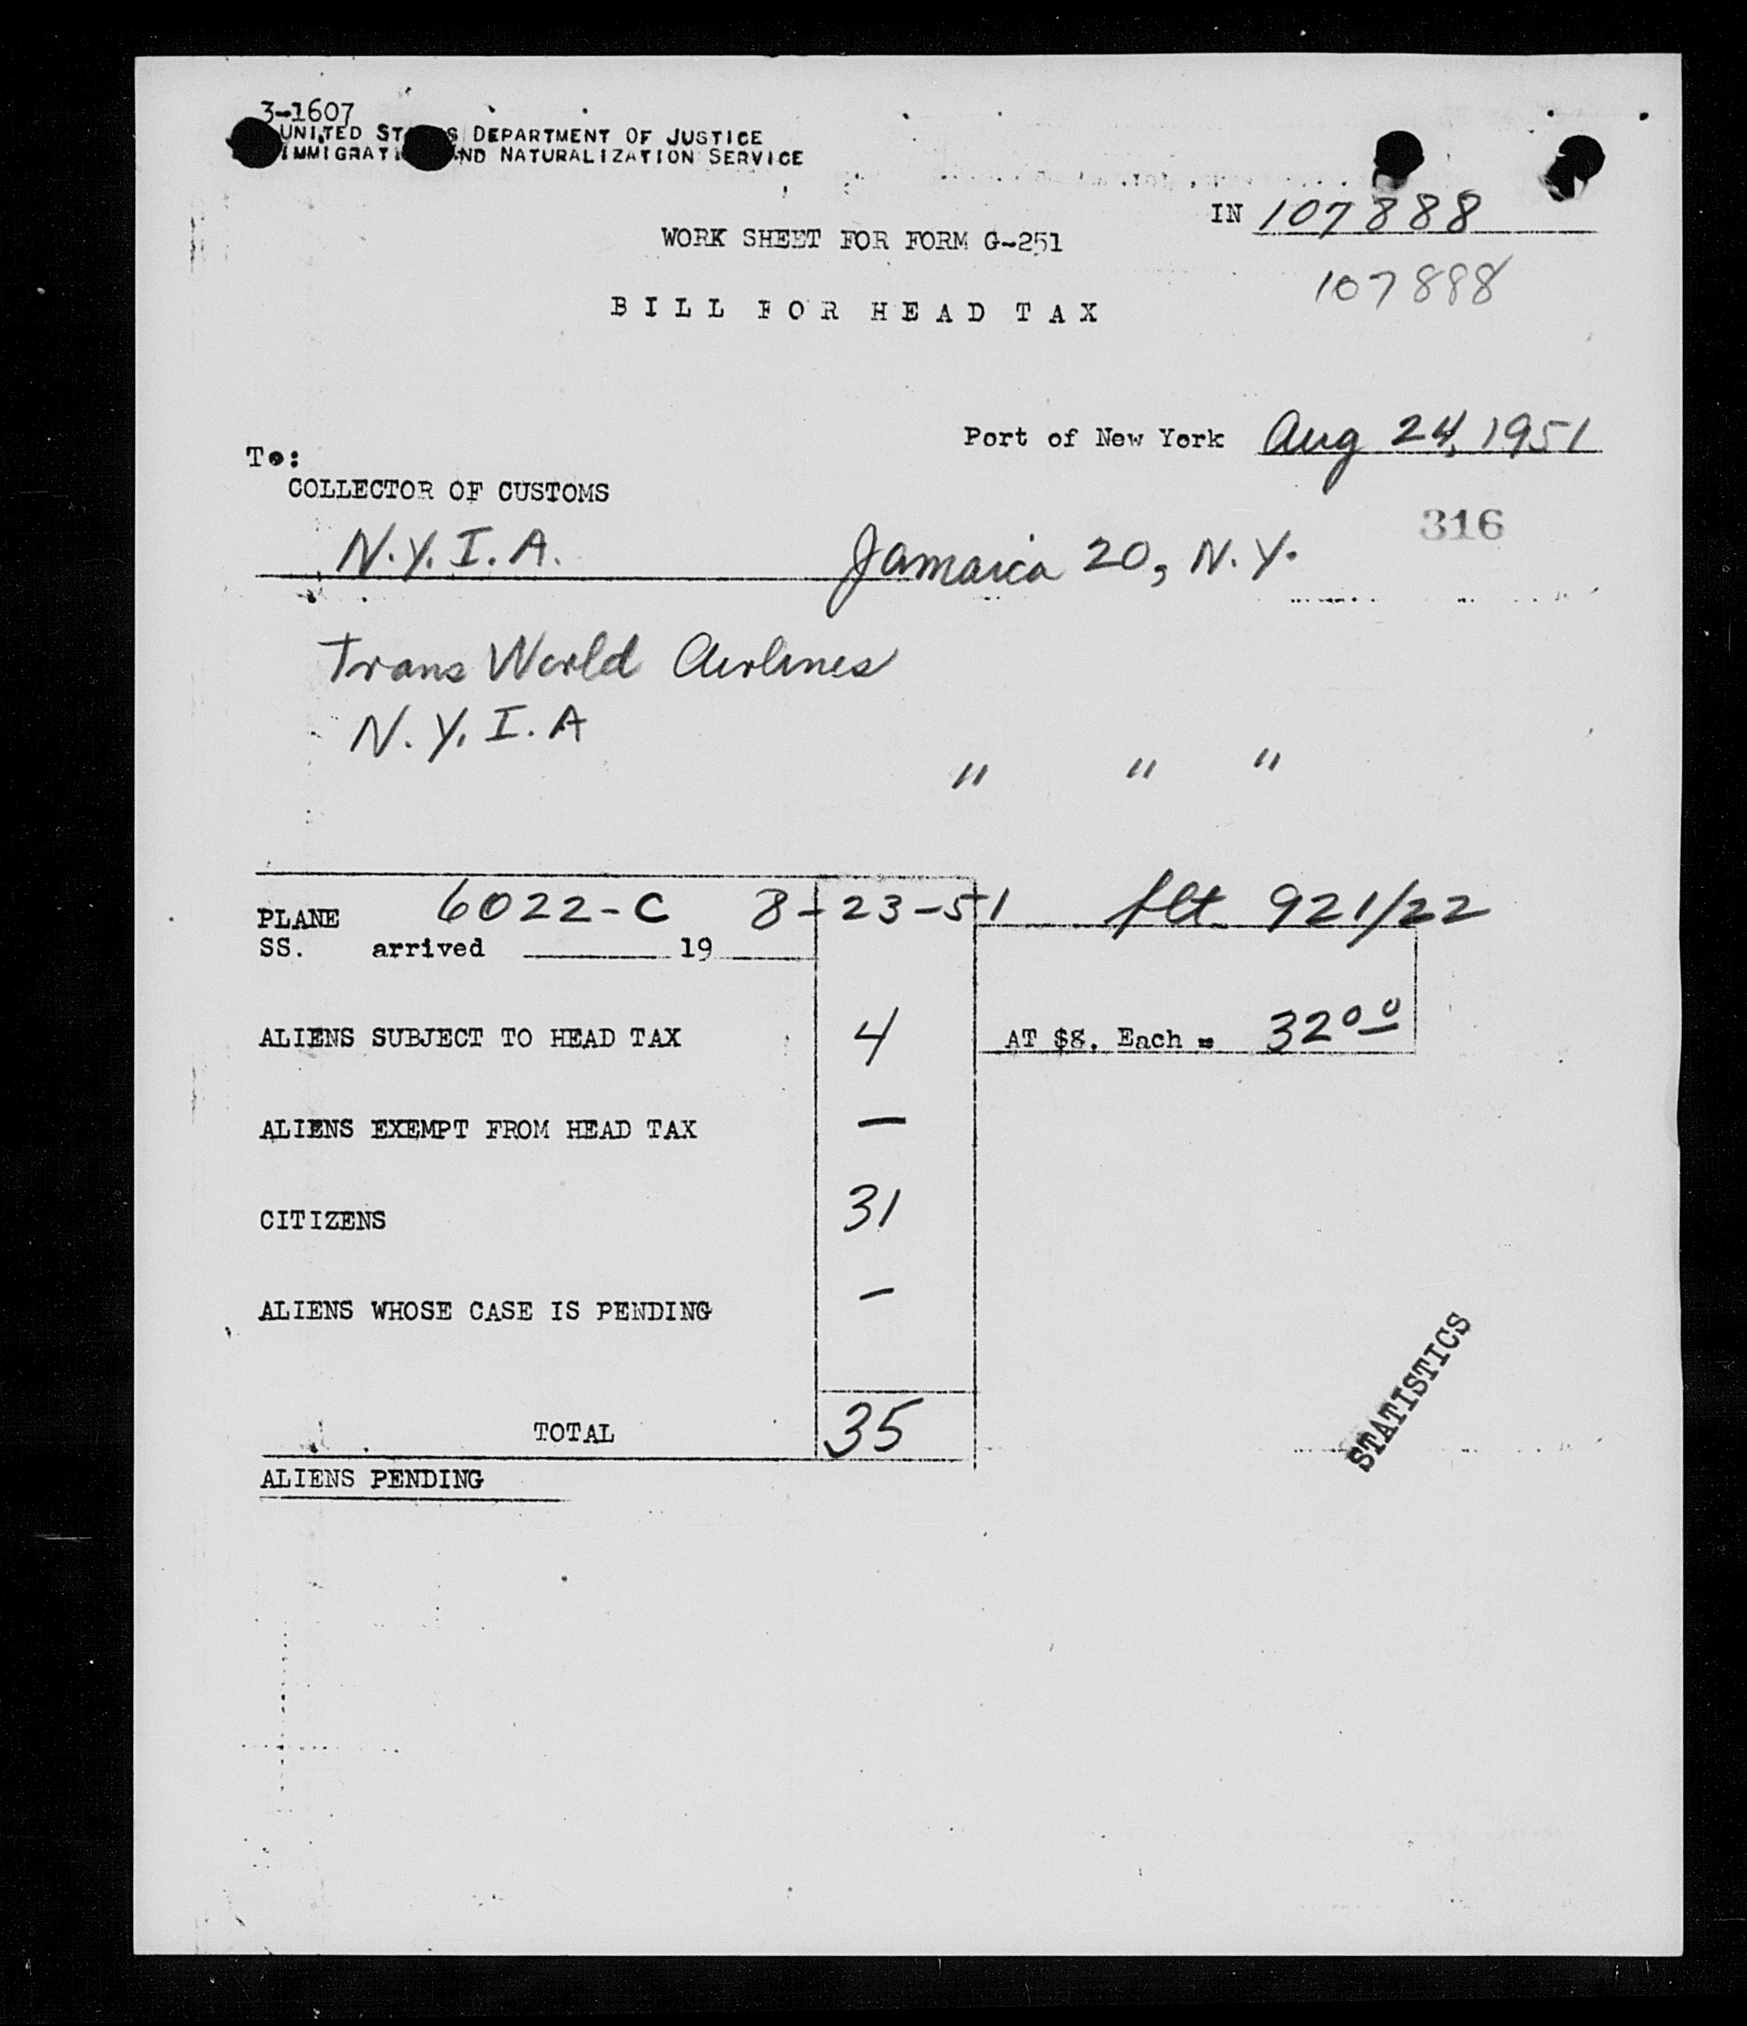 3-1607
UNITED ST S DEPARTMENT OF JUSTICE
IMMIGRATI ND NATURALIZATION SERVICE
IN 107888
WORK SHEET FOR FORM G-251
107888
BILL FOR HEAD TAX
Port of New York Aug 24, 1951
To:
COLLECTOR OF CUSTOMS
316
N.Y.I.A. Jamaica 20, N.Y.
Trans World Airlines
N.Y.I.A
" " "
PLANE 6022-C 8-23-51 flt 921/22
SS. arrived 19
ALIENS SUBJECT TO HEAD TAX 4 AT $8. Each = 32 00
ALIENS EXEMPT FROM HEAD TAX —
CITIZENS 31
ALIENS WHOSE CASE IS PENDING —
STATISTICS
TOTAL 35
ALIENS PENDING